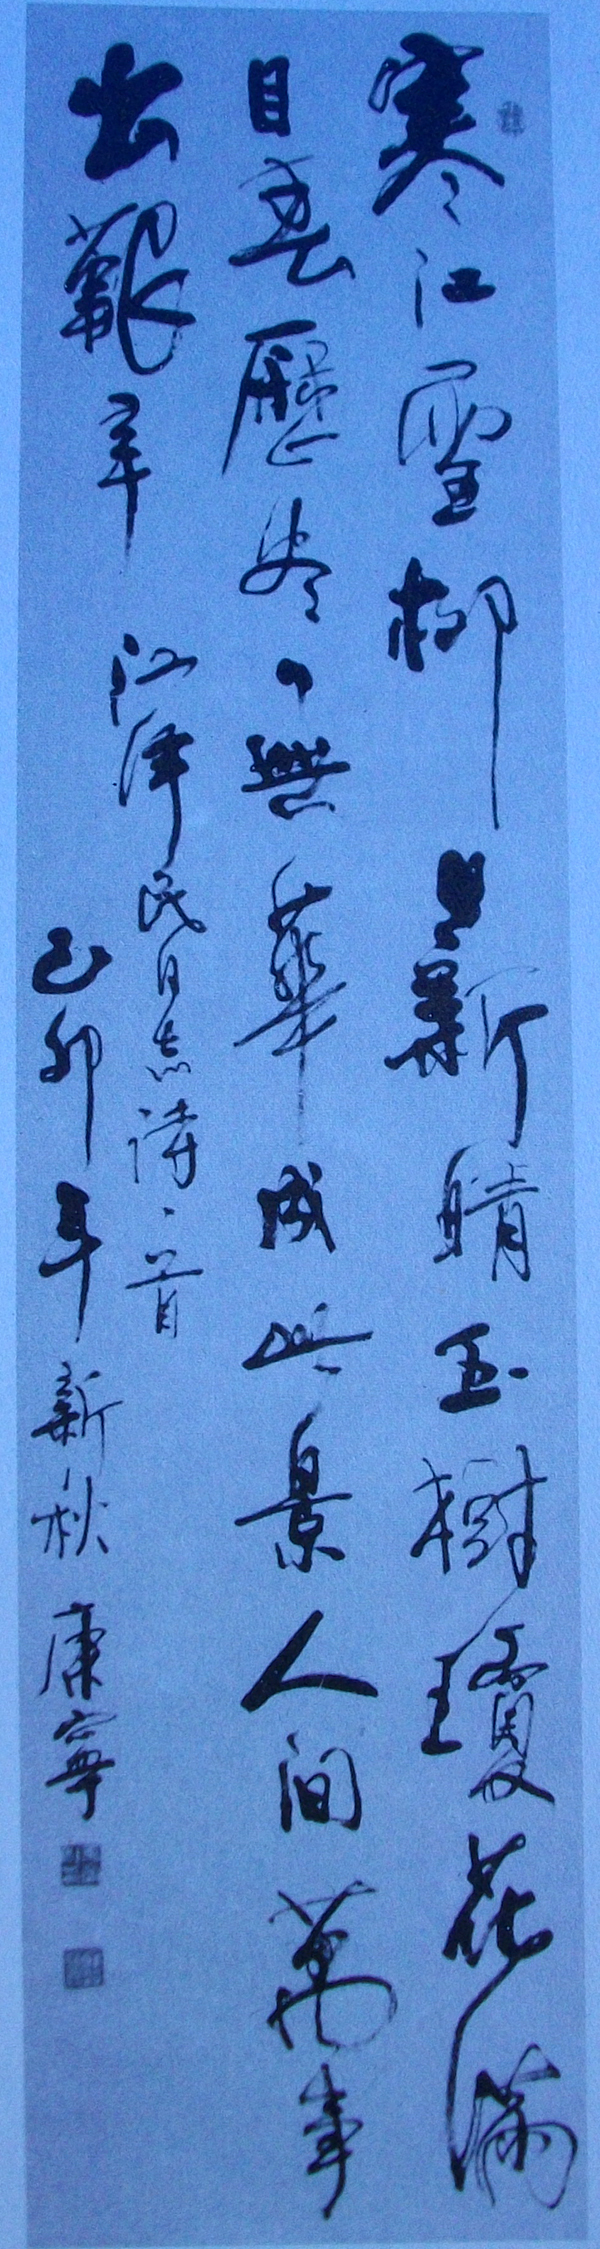 寒江雪柳日新晴玉樹瓊花滿
目春歷尽無華成此景人间萬事
出艱辛
江澤民同志詩一首
己卯年新秋 康寧